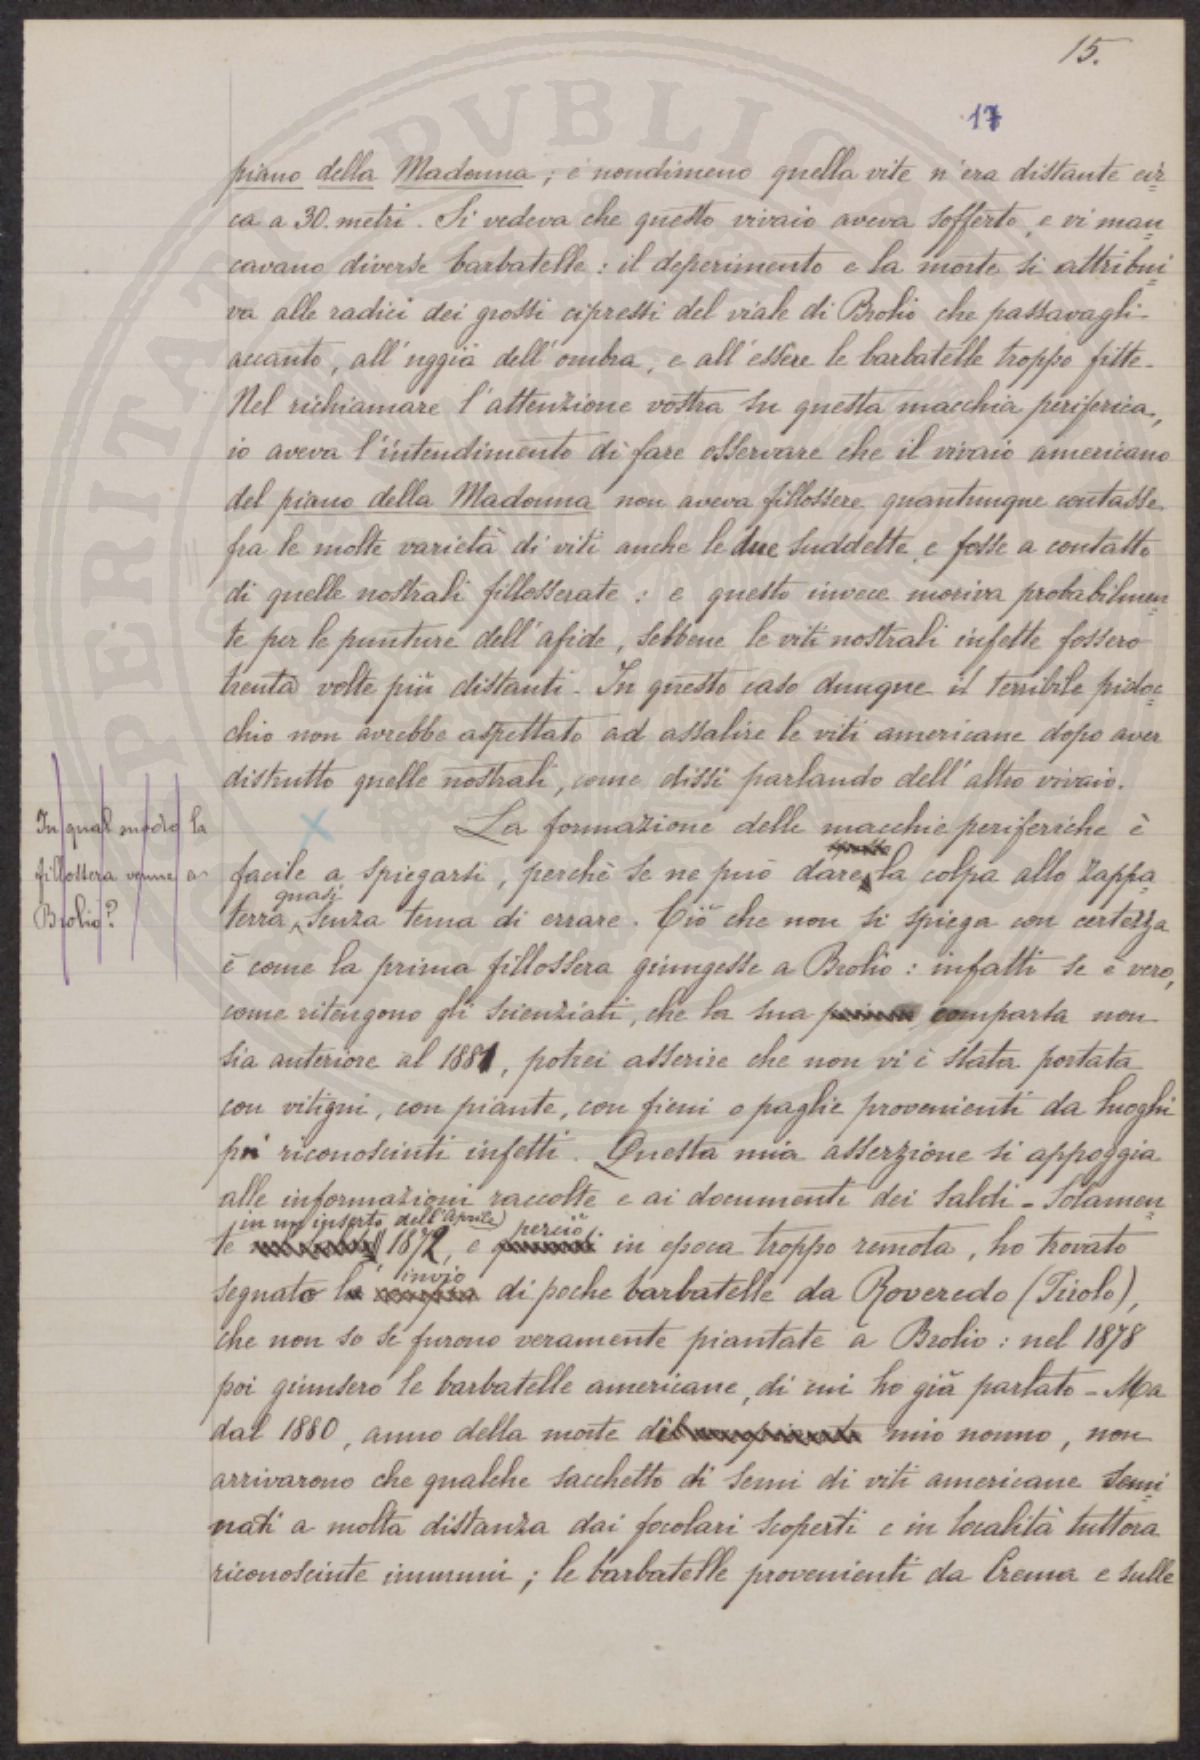 15.
17
piano della Madonna; e nondimeno quella vite n'era distante cir=
ca a 30. metri. Si vedeva che questo vivaio aveva sofferto, e vi man=
cavano diverse barbatelle: il deperimento e la morte si attribui=
va alle radici dei grossi cipressi del viale di Brolio che passavagli
accanto, all'uggia dell'ombra, e all'essere le barbatelle troppo fitte.
Nel richiamare l'attenzione vostra su questa macchia periferica,
io aveva l'intendimento di fare osservare che il vivaio americano
del piano della Madonna non aveva fillossere quantunque contasse
fra le molte varietà di viti anche le due suddette, e fosse a contatto
di quelle nostrali fillosserate: e questo invece moriva probabilmen=
te per le punture dell'afide, sebbene le viti nostrali infette fossero
trenta volte più distanti. In questo caso dunque il terribile pidoc=
chio non avrebbe aspettato ad assalire le viti americane dopo aver
distrutto quelle nostrali, come dissi parlando dell'altro vivaio.
In qual modo la
fillossera venne a
Brolio?
La formazione delle macchie periferiche è
facile a spiegarsi, perchè se ne può dare la colpa allo zappa=
terra quasi senza tema di errare. Ciò che non si spiega con certezza
è come la prima fillossera giungesse a Brolio: infatti se è vero,
come ritengono gli scienziati, che la sua prima comparsa non
sia anteriore al 1881, potrei asserire che non vi è stata portata
con vitigni, con piante, con fieni o paglie provenienti da luoghi
riconosciuti infetti. Questa mia asserzione si appoggia
alle informazioni raccolte e ai documenti dei saldi - Solamen=
te in un inserto dell'Aprile 1872, e perciò in epoca troppo remota, ho trovato
segnato invio di poche barbatelle da Roveredo (Tirolo),
che non so se furono veramente piantate a Brolio: nel 1878
poi giunsero le barbatelle americane, di cui ho già parlato - Ma
dal 1880, anno della morte di mio nonno, non
arrivarono che qualche sacchetto di semi di viti americane semi=
nati a molta distanza dai focolari scoperti e in località tuttora
riconosciute immuni; le barbatelle provenienti da Crema e sulle